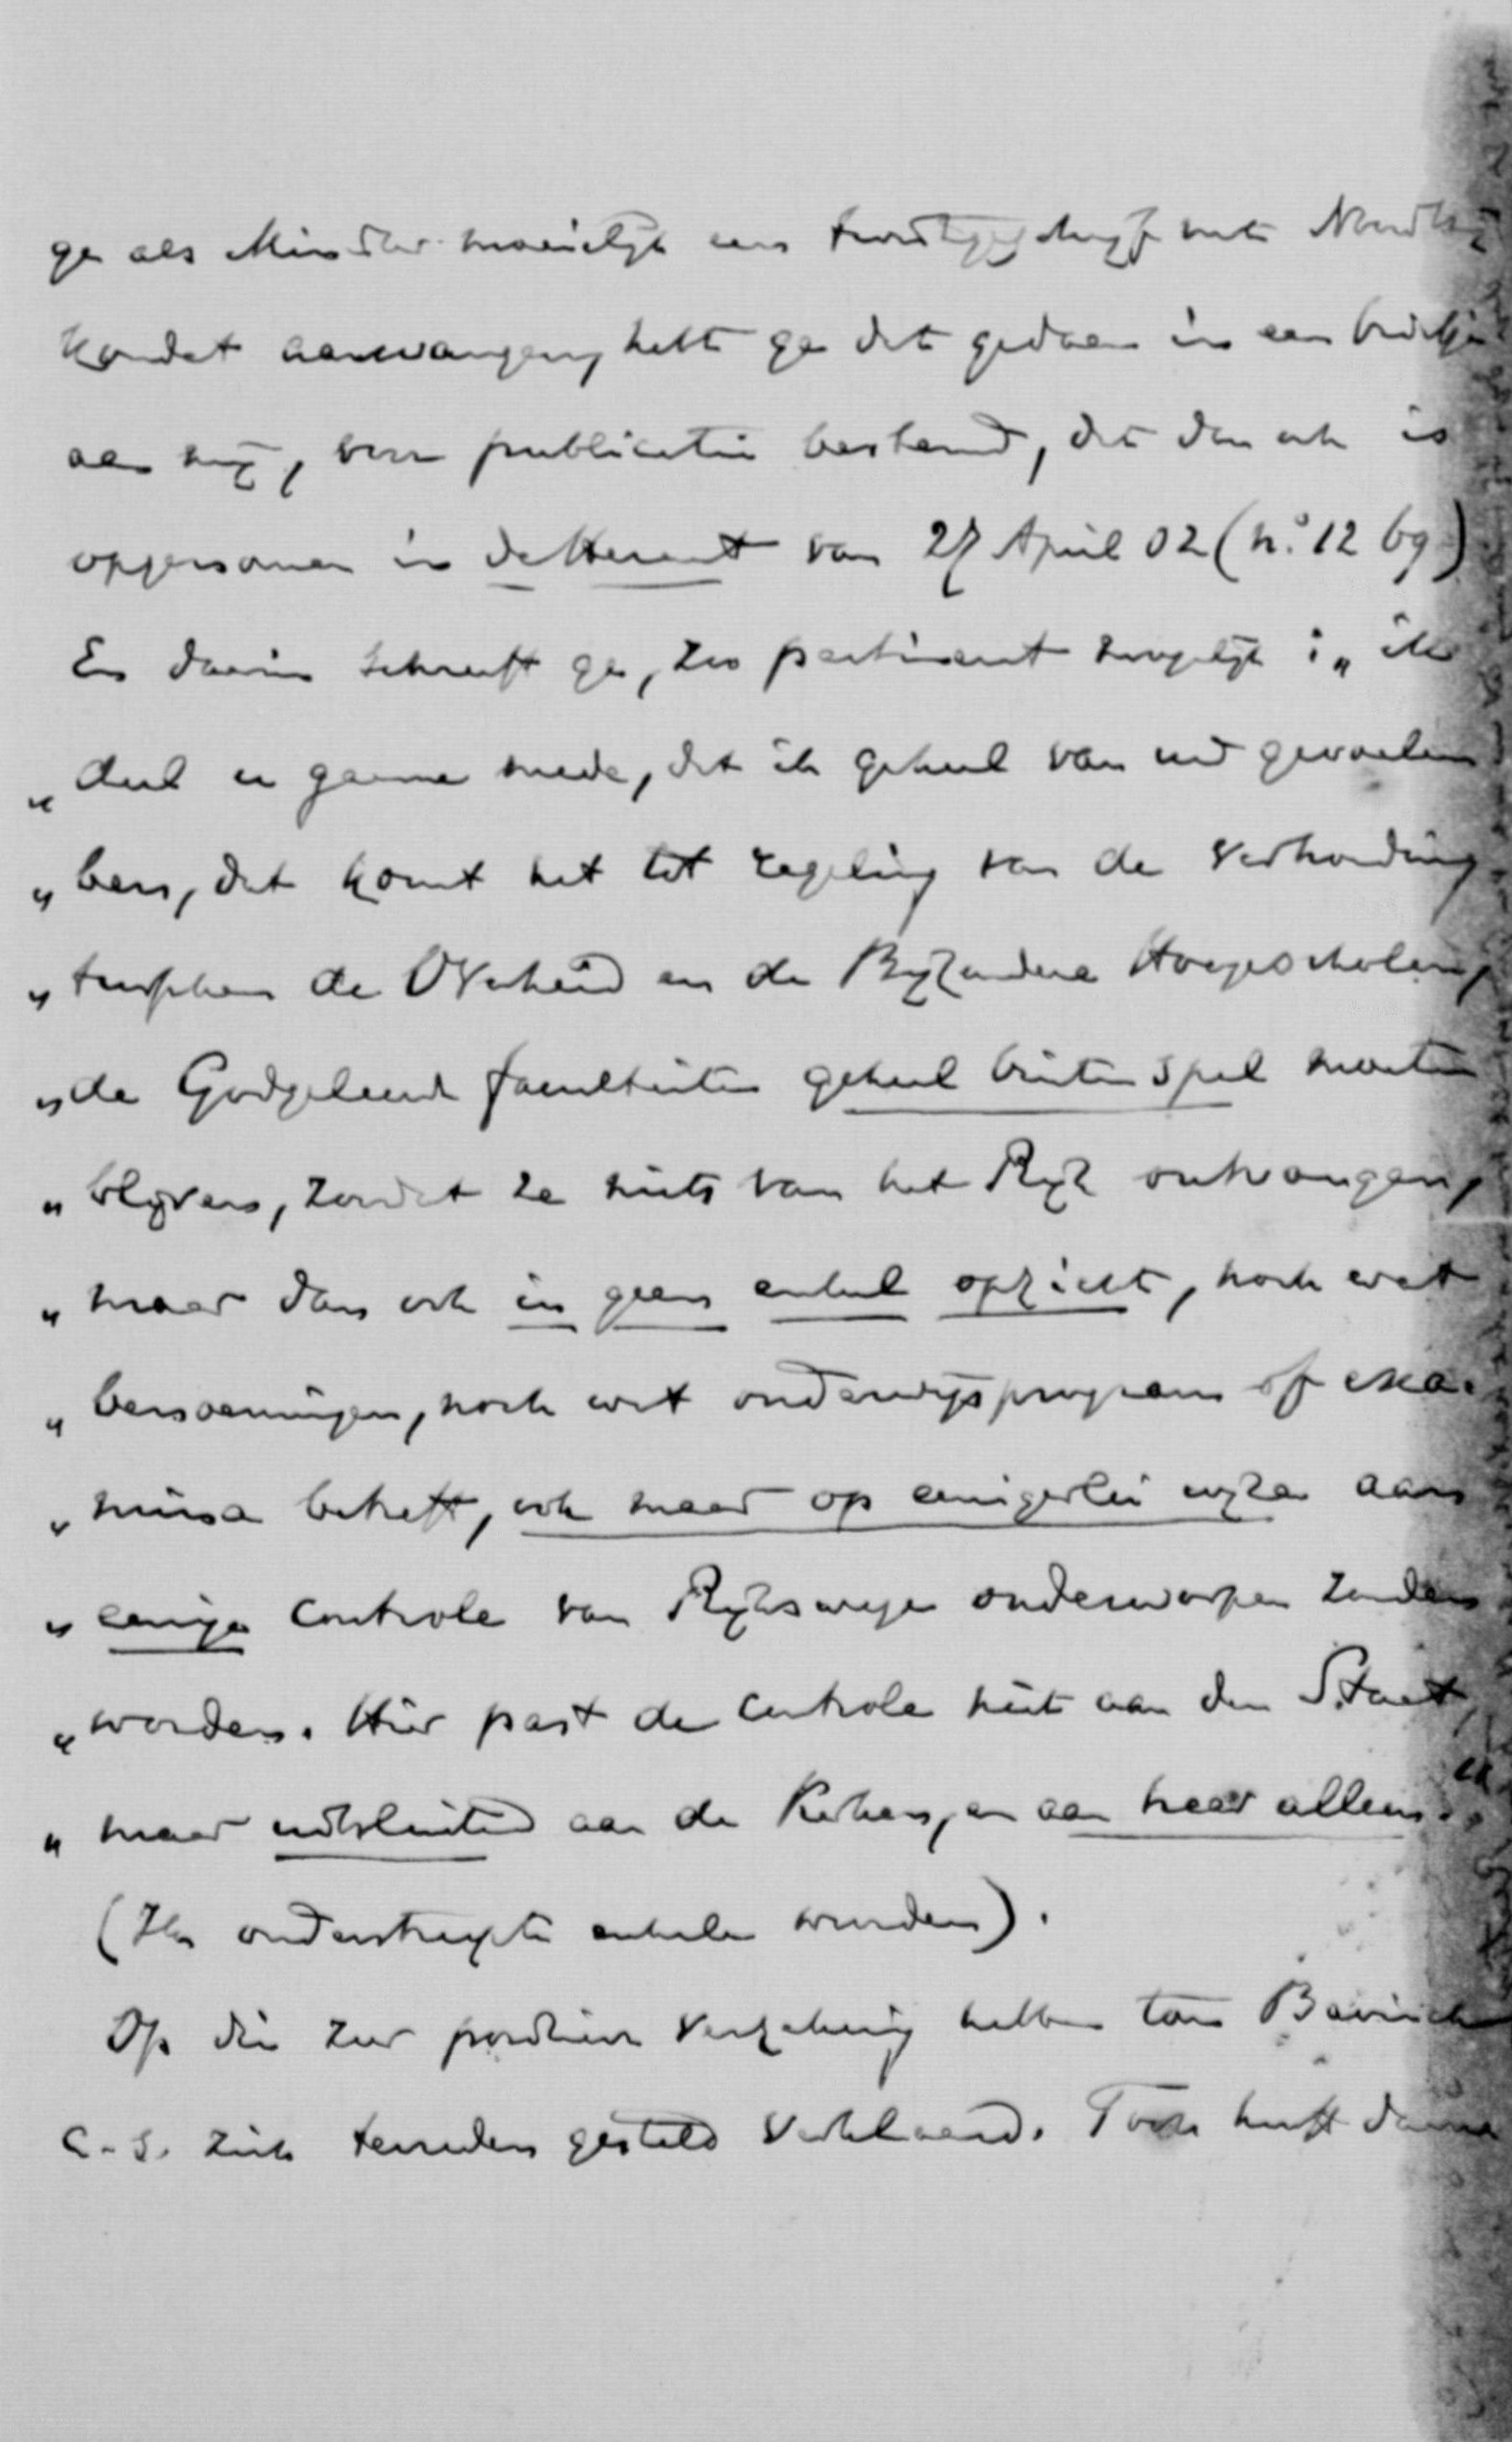 ge als Minister moeielijk een twistgeschrijf met Noordtzij
kondet aanvangen, hebt ge dit gedaan in een briefje
aan mij, voor publicatie bestemd, dat dan ook is
opgenomen in de Heraut van 27 April 02 (no. 12 69)
En daarin schreeft ge, zoo pertinent mogelijk: „ ik
„ deel u gaarne mede, dat ik geheel van uw gevoelen
„ ben, dat komt het tot regeling van de verhouding
„ tusschen de Overheid en de Byzondere Hoogescholen,
„ de Godgeleerde faculteiten geheel buiten spel moeten
„ blijven, zoodat ze niets van het Rijk ontvangen,
„ maar dan ook in geen enkel opzicht, noch wat
„ benoemingen, noch wat onderwijsprogram of exa-
„ mina betreft, ook maar op eenigerlei wijze aan
„ eenige controle van Rijkswege onderworpen zouden
„ worden. Hier past de controle niet aan den Staat,
„ maar uitsluitend aan de Kerken, en aan haar alleen."
(Ik onderstreepte enkele woorden).
Op die zeer positieve verzekering hebben toen Bavinck
c.s. zich tevreden gesteld verklaard. Toch heeft daarna